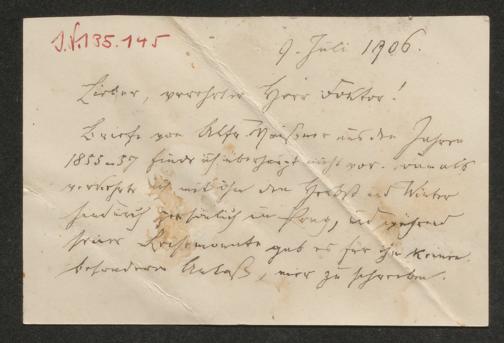 J.N. 135.145
9. Juli 1906.
Lieber, verehrter Herr Doktor!
Briefe von Alfr. Meißner aus den Jahren
1855–57 finde ich überhaupt nicht vor. Damals
verkehrte ich mit ihm den Herbst und Winter
hindurch persönlich in Prag, und während
seiner Reisemonate gab es für ihn keinen
besonderen Anlaß, mir zu schreiben.